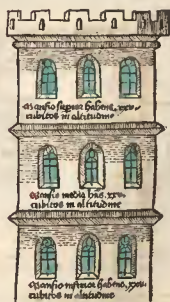 Mansio superior habens .xxv.
cubitos in altitudine
Mansio media hñs .xxv.
cubitos in altitudine
Mansio inferior habens .xxv.
cubitos in altitudine